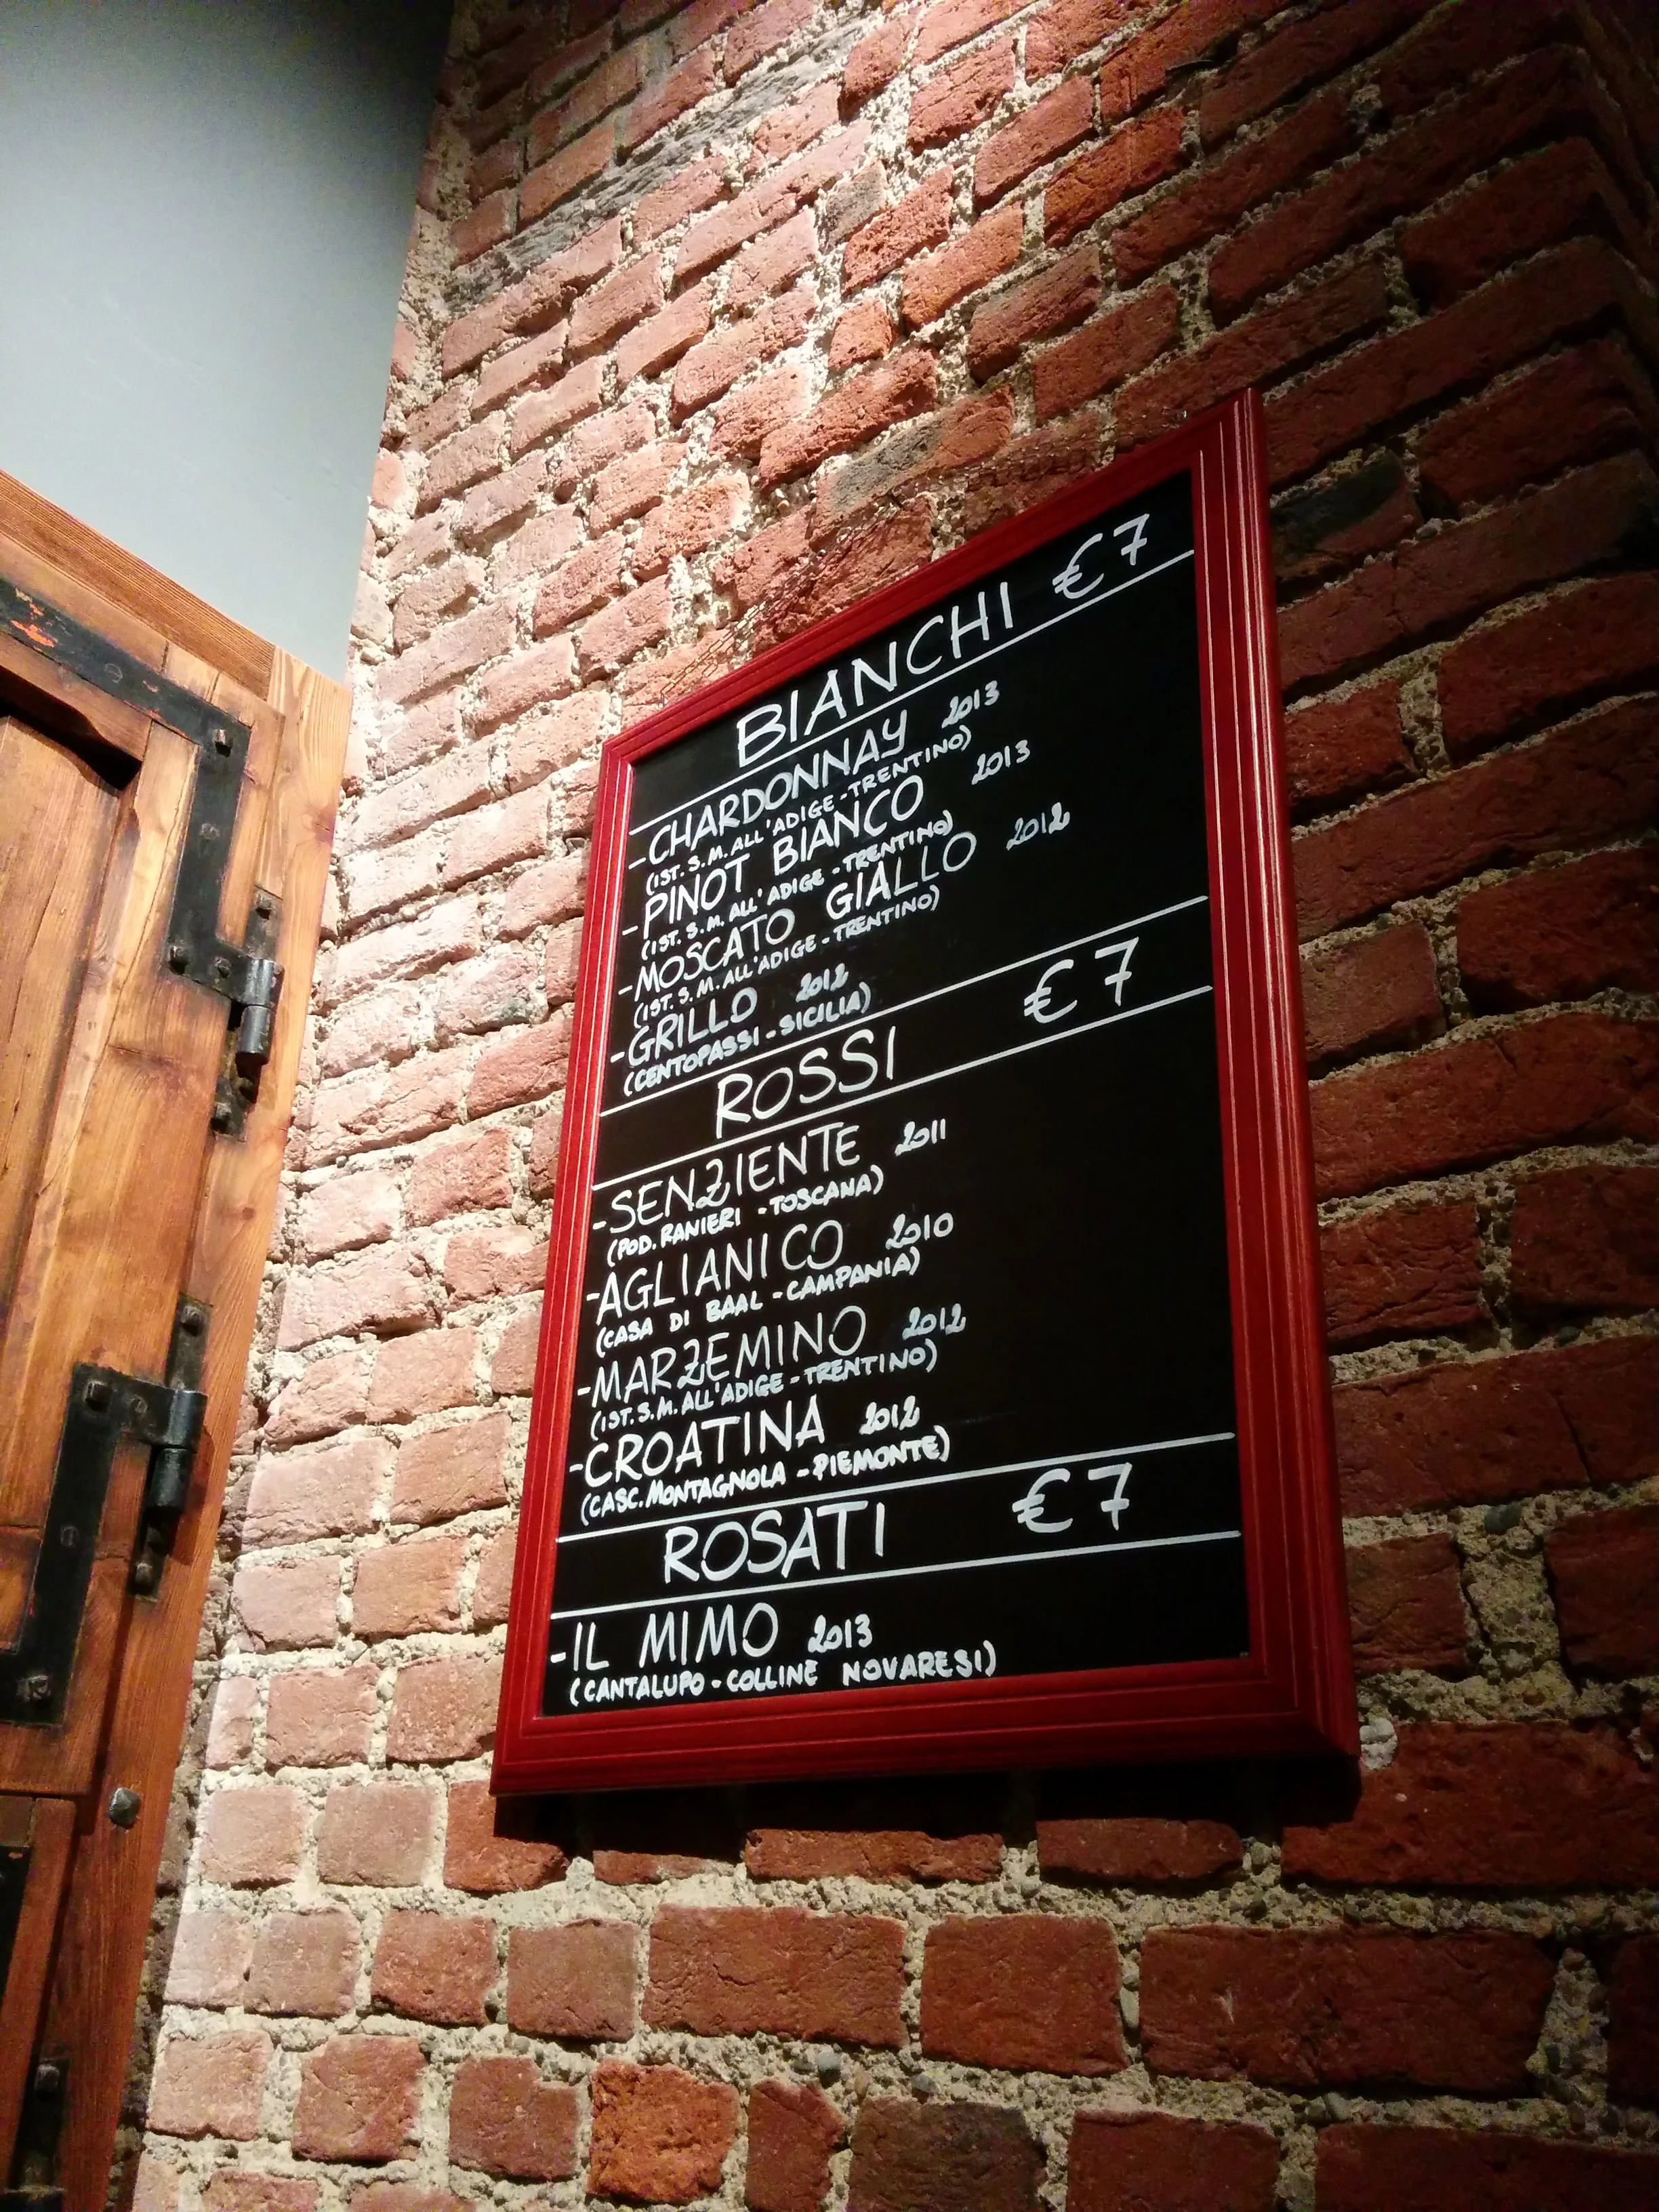 BIANCHI €7
-CHARDONNAY 2013
(IST. S. M. ALL'ADIGE-TRENTINO)
-PINOT BIANCO 2013
(IST. S. M. ALL'ADIGE-TRENTINO)
-MOSCATO GIALLO 2012
(IST. S. M. ALL'ADIGE-TRENTINO)
-GRILLO 2012
(CENTOPASSI-SICILIA)
ROSSI €7
-SENZIENTE 2011
(POD. RANIERI -TOSCANA)
-AGLIANICO 2010
(CASA DI BAAL -CAMPANIA)
-MARZEMINO 2012
(IST. S. M. ALL'ADIGE-TRENTINO)
-CROATINA 2012
(CASC. MONTAGNOLA -PIEMONTE)
ROSATI €7
-IL MIMO 2013
(CANTALUPO-COLLINE NOVARESI)